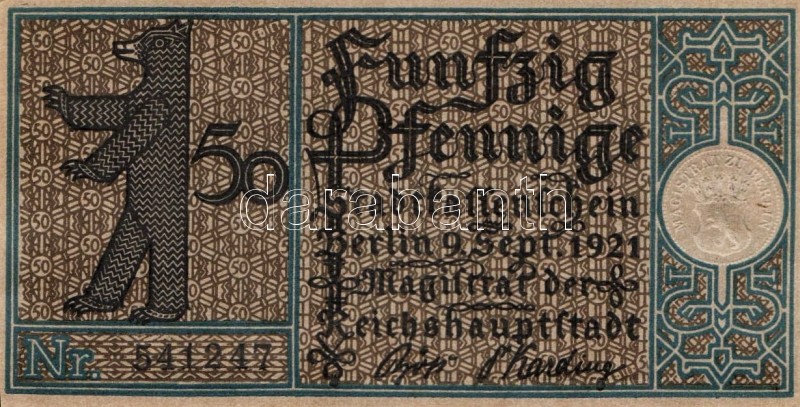 Fünfzig
Pfennige
50
Stadtkassenschein
Berlin 9. Sept. 1921
Magistrat der
Reichshauptstadt
Nr. 541247
MAGISTRAT ZU BERLIN
darabanth